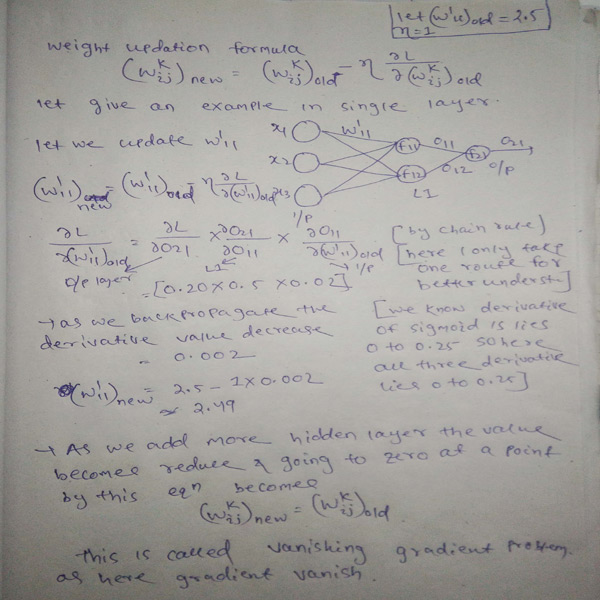 let (w'11)old = 2.5
η=1
weight updation formula
(w^k_ij)new = (w^k_ij)old - η ∂L/∂(w^k_ij)old
let give an example in single layer.
let we update w'11
x1
x2
x3
w'11
f11
f12
O11
O12
f21
O21
O/P
L1
I/P
(w'11)new = (w'11)old - η ∂L/∂(w'11)old
∂L/∂(w'11)old = ∂L/∂O21 × ∂O21/∂O11 × ∂O11/∂(w'11)old
O/p layer
L1
I/P
[by chain rule]
[here I only take
one route for
better underst.]
= [0.20 × 0.5 × 0.02]
→ as we backpropagate the
derivative value decrease
= 0.002
[we know derivative
of sigmoid is lies
0 to 0.25 so here
all three derivative
lies 0 to 0.25]
(w'11)new = 2.5 - 1 × 0.002
≈ 2.49
→ As we add more hidden layer the value
becomes reduce & going to zero at a point
by this eqn becomes
(w^k_ij)new = (w^k_ij)old.
This is called vanishing gradient problem.
as here gradient vanish.